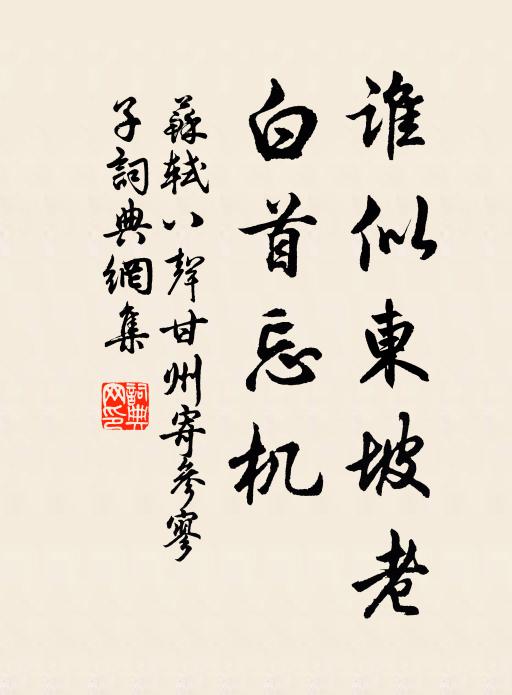 誰似東坡老
白首忘机
蘇軾八聲甘州寄參寥
子詞典網集
詞典
网印